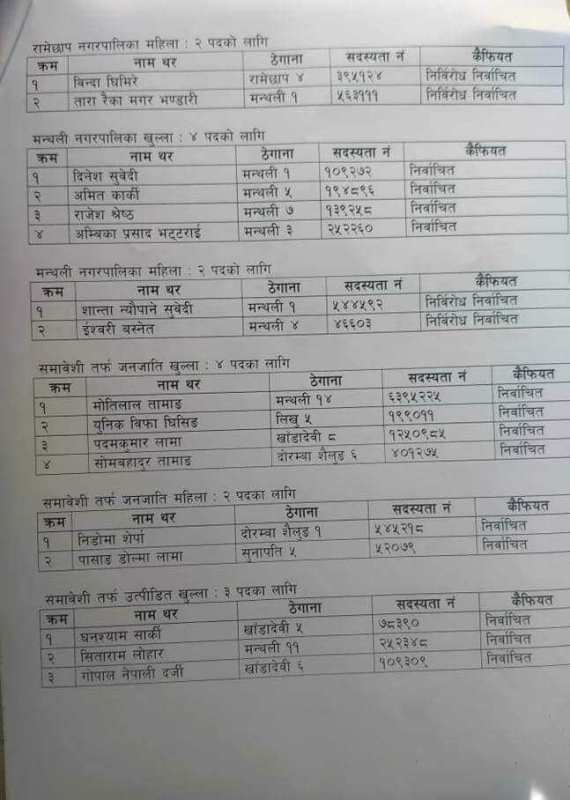 रामेछाप नगरपालिका महिला : २ पदको लागि
क्रम नाम थर ठेगाना सदस्यता नं कैफियत
१ बिन्दा घिमिरे रामेछाप ४ ३९५१२४ निर्विरोध निर्वाचित
२ तारा रैका मगर भण्डारी मन्थली १ ५६३१११ निर्विरोध निर्वाचित
मन्थली नगरपालिका खुल्ला : ४ पदको लागि
क्रम नाम थर ठेगाना सदस्यता नं कैफियत
१ दिनेश सुवेदी मन्थली १ १०९२७२ निर्वाचित
२ अमित कार्की मन्थली ५ १९४८९६ निर्वाचित
३ राजेश श्रेष्ठ मन्थली ७ १३९२५८ निर्वाचित
४ अम्बिका प्रसाद भट्टराई मन्थली ३ २५२२६० निर्वाचित
मन्थली नगरपालिका महिला : २ पदको लागि
क्रम नाम थर ठेगाना सदस्यता नं कैफियत
१ शान्ता न्यौपाने सुवेदी मन्थली १ ५४४५९२ निर्विरोध निर्वाचित
२ ईश्वरी बस्नेत मन्थली ४ ४६६०३ निर्विरोध निर्वाचित
समावेशी तर्फ जनजाति खुल्ला : ४ पदका लागि
क्रम नाम थर ठेगाना सदस्यता नं कैफियत
१ मोतिलाल तामाङ मन्थली १४ ६३९५२२५ निर्वाचित
२ युनिक विफा घिसिङ लिखु ५ १९९०११ निर्वाचित
३ पदमकुमार लामा खाँडादेवी ८ १२५०९८५ निर्वाचित
४ सोमबहादुर तामाङ दोरम्बा शैलुङ ६ ४०१२७५ निर्वाचित
समावेशी तर्फ जनजाति महिला : २ पदका लागि
क्रम नाम थर ठेगाना सदस्यता नं कैफियत
१ निङोमा शेर्पा दोरम्बा शैलुङ १ ५४५२१८ निर्वाचित
२ पासाङ डोल्मा लामा सुनापति ५ ५२०७९ निर्वाचित
समावेशी तर्फ उत्पीडित खुल्ला : ३ पदका लागि
क्रम नाम थर ठेगाना सदस्यता नं कैफियत
१ घनश्याम सार्की खाँडादेवी ५ ७८३९० निर्वाचित
२ सिताराम लोहार मन्थली ११ २५२३४८ निर्वाचित
३ गोपाल नेपाली दर्जी खाँडादेवी ६ १०९३०९ निर्वाचित